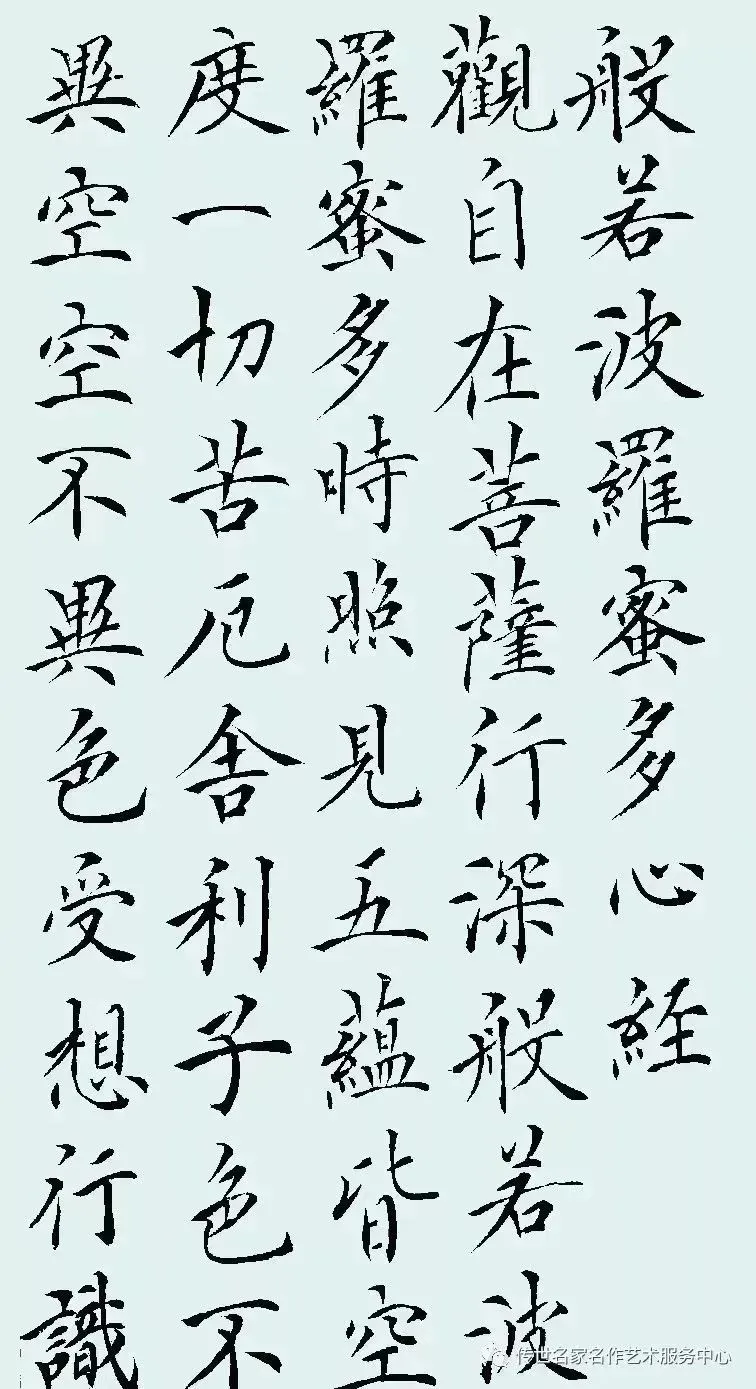 般若波羅蜜多心経
觀自在菩薩行深般若波
羅蜜多時照見五蘊皆空
度一切苦厄舍利子色不
異空空不異色受想行識
传世名家名作艺术服务中心